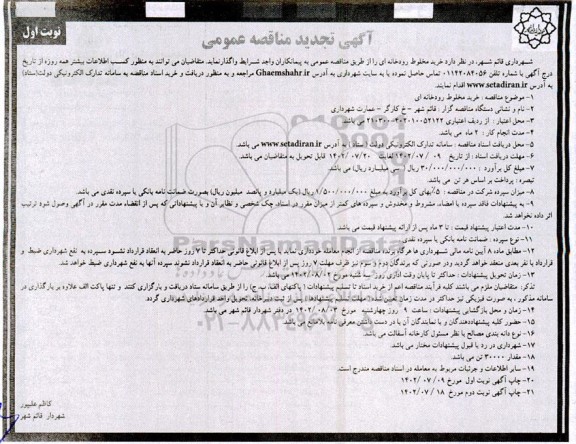 نوبت اول
آگهی تجدید مناقصه عمومی
شهرداری قائم شهر، در نظر دارد خرید مخلوط رودخانه ای را از طریق مناقصه عمومی به پیمانکاران واجد شرایط واگذارنماید. متقاضیان می توانند به منظور کسب اطلاعات بیشتر همه روزه از تاریخ
درج آگهی با شماره تلفن ۰۱۱۴۲۰۸۴۰۵۶ تماس حاصل نموده یا به سایت شهرداری به آدرس Ghaemshahr.ir مراجعه و به منظور دریافت و خرید اسناد مناقصه به سامانه تدارک الکترونیکی دولت(ستاد)
به آدرس www.setadiran.ir اقدام نمایند.
۱- موضوع مناقصه : خرید مخلوط رودخانه ای
۲- نام و نشانی دستگاه مناقصه گزار : قائم شهر – خ کارگر – عمارت شهرداری
۳- محل اعتبار : از ردیف اعتباری می باشد
۴- مدت انجام کار : ۲ ماه می باشد.
۵- محل دریافت اسناد مناقصه : سامانه تدارک الکترونیکی دولت ( ستاد ) به آدرس www.setadiran.ir می باشد
۶- مهلت دریافت اسناد : از تاریخ ۰۹ / ۰۷ / ۱۴۰۲ لغایت ۱۴۰۲/۰۷/۲۰ قابل تحویل به متقاضیان می باشد.
۷- مبلغ کل برآورد : ۳۰/۰۰۰/۰۰۰/۰۰۰ ریال (سی میلیارد ریال) می باشد.
تبصره: پرداخت بر اساس هر تن می باشد.
۸- میزان سپرده شرکت در مناقصه : ۵٪بهای کل برآورد به مبلغ ۱/۵۰۰/۰۰۰/۰۰۰ ریال (یک میلیارد و پانصد میلیون ریال) بصورت ضمانت نامه بانکی یا سپرده نقدی می باشد.
۹- به پیشنهادات فاقد سپرده یا امضاء، مشروط و مخدوش و سپرده های کمتر از میزان مقرر در اسناد، چک شخصی و نظایر آن و یا پیشنهاداتی که پس از انقضاء مدت مقرر در آگهی وصول شود ترتیب
اثر داده نخواهد شد.
۱۰- مدت اعتبار پیشنهاد قیمت : تا ۳ ماه پس از ارائه پیشنهاد قیمت می باشد.
۱۱- نوع سپرده : ضمانت نامه بانکی یا سپرده نقدی
۱۲- مطابق ماده ۸ آیین نامه مالی شهرداری ها هرگاه برنده مناقصه از انجام معامله خودداری نماید یا پس از ابلاغ قانونی حداکثر تا ۷ روز حاضر به انعقاد قرارداد نشود سپرده به نفع شهرداری ضبط و
قرارداد با نفر بعدی منعقد خواهد گردید. در صورتی که برندگان دوم و سوم نیز ظرف مهلت ۷ روز پس از ابلاغ قانونی حاضر به انعقاد قرارداد نشوند سپرده آنها به نفع شهرداری ضبط خواهد شد.
۱۳- زمان تحویل پیشنهادات : حداکثر تا پایان وقت اداری روز سه شنبه مورخ ۱۴۰۲/۰۸/۰۲ می باشد.
تذکر: متقاضیان ملزم می باشند کلیه فرآیند مناقصه اعم از خرید اسناد تا تسلیم پیشنهادات ( پاکتهای الف، ب، ج) را از طریق سامانه ستاد دریافت و بارگزاری کنند و تنها پاکت الف علاوه بر بارگذاری در
سامانه مذکور ، به صورت فیزیکی نیز حداکثر در مدت زمان تعیین شده( مهلت تسلیم پیشنهادها) پس از ثبت دبیرخانه، تحویل واحد قراردادهای شهرداری گردد
۱۴- زمان و محل بازگشایی پیشنهادات : ساعت ۹ روز چهارشنبه مورخ ۱۴۰۲/۰۸/۰۳ در دفتر شهردار قائم شهر می باشد.
۱۵- حضور کلیه پیشنهاددهندگان و یا نمایندگان آن با در دست داشتن معرفی نامه بلامانع می باشد.
۱۶- نوع دانه بندی مصالح با نظر مسئول کارخانه آسفالت می باشد.
۱۷- شهرداری در رد یا قبول پیشنهادات مختار می باشد.
۱۸- مقدار ۳۰۰۰۰ تن می باشد.
۱۹- سایر اطلاعات و جزئیات مربوط به معامله در اسناد مناقصه مندرج است.
۲۰- چاپ آگهی نوبت اول مورخ ۰۹ / ۰۷ / ۱۴۰۲
۲۱- چاپ آگهی نوبت دوم مورخ ۱۸ / ۰۷ / ۱۴۰۲
کاظم علیپور
شهردار قائم شهر
ParsNamadData